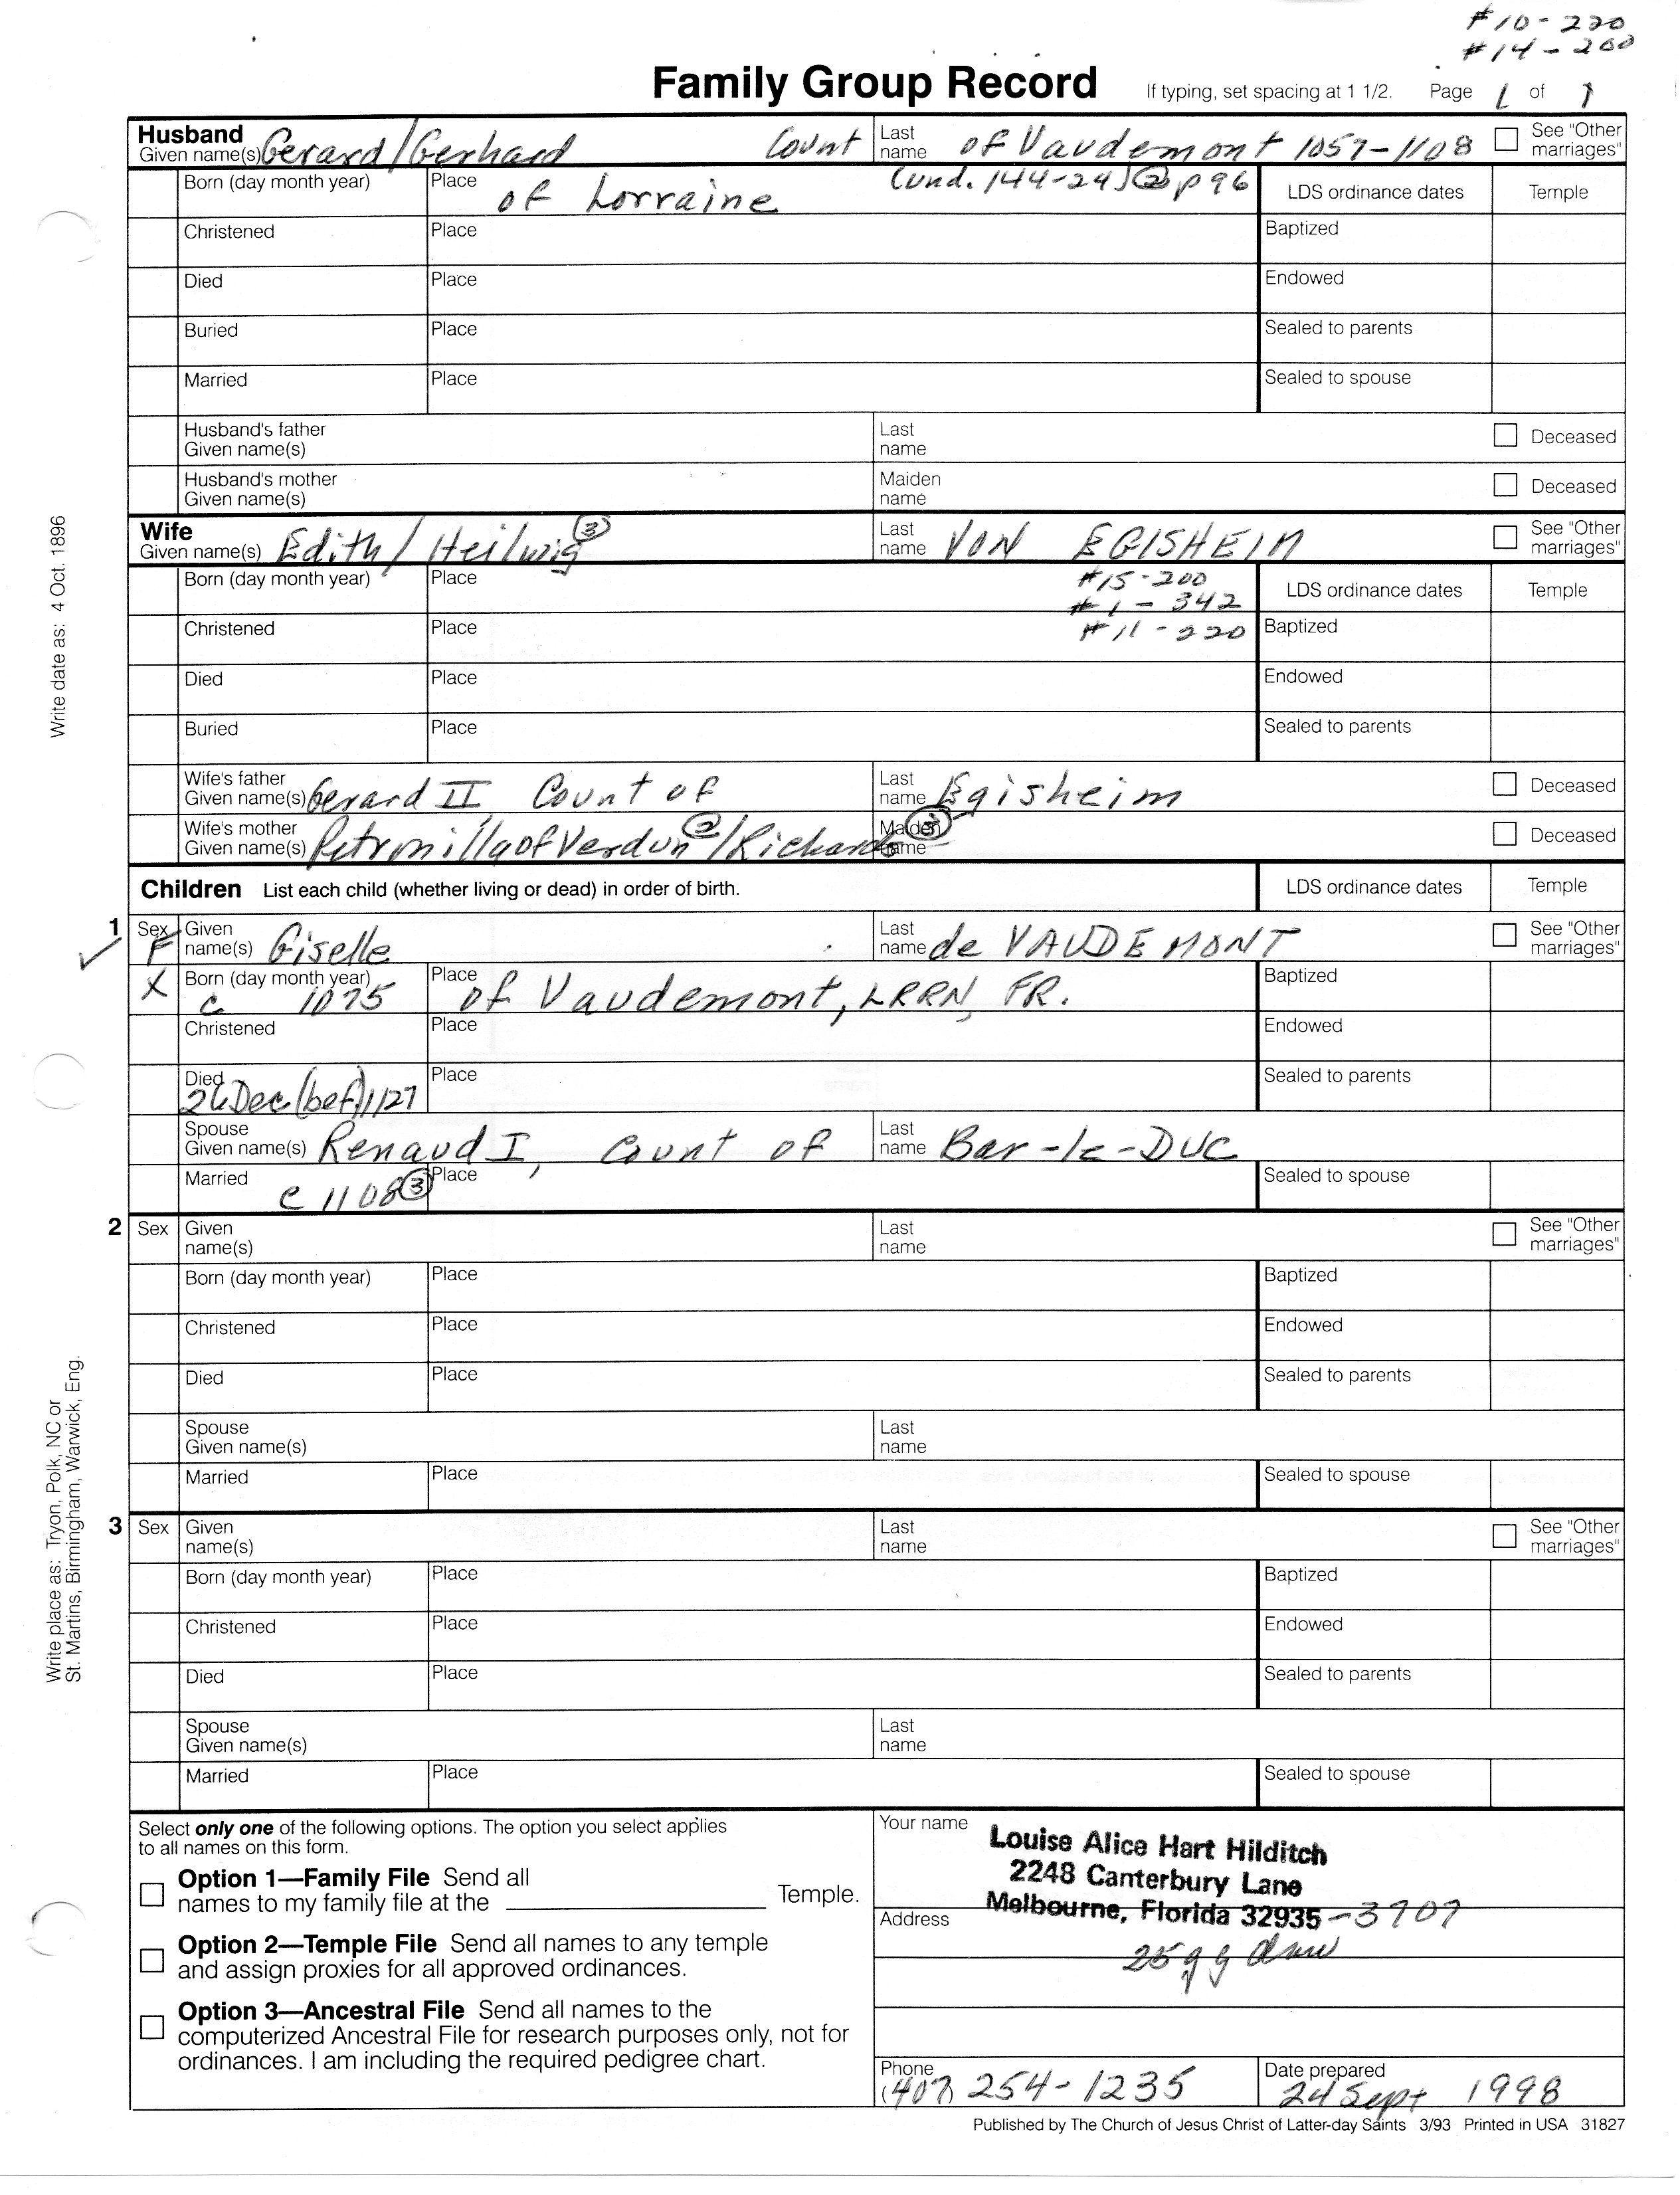 #10-220
#14-200
Family Group Record If typing, set spacing at 1 1/2. Page 1 of 1
Husband
Given name(s) Gerard/Gerhard Count Last name of Vaudemont 1057-1108 See "Other marriages"
Born (day month year) Place of Lorraine (und. 144-24) 2 p 96 LDS ordinance dates Temple
Christened Place Baptized
Died Place Endowed
Buried Place Sealed to parents
Married Place Sealed to spouse
Husband's father Given name(s) Last name Deceased
Husband's mother Given name(s) Maiden name Deceased
Wife
Given name(s) Edith/Heilwig 3 Last name VON EGISHEIM See "Other marriages"
Born (day month year) Place #15-200 LDS ordinance dates Temple
#1-342
Christened Place #11-220 Baptized
Died Place Endowed
Buried Place Sealed to parents
Wife's father Given name(s) Gerard II Count of Last name Egisheim Deceased
Wife's mother Given name(s) Petronilla of Verdun 2 /Richarda 3 Maiden name Deceased
Children List each child (whether living or dead) in order of birth. LDS ordinance dates Temple
1 Sex F Given name(s) Giselle Last name de VAUDEMONT See "Other marriages"
X Born (day month year) c 1075 Place of Vaudemont, LRRN, FR. Baptized
Christened Place Endowed
Died 26 Dec (bef) 1127 Place Sealed to parents
Spouse Given name(s) Renaud I, Count of Last name Bar-le-DUC
Married c 1108 3 Place Sealed to spouse
2 Sex Given name(s) Last name See "Other marriages"
Born (day month year) Place Baptized
Christened Place Endowed
Died Place Sealed to parents
Spouse Given name(s) Last name
Married Place Sealed to spouse
3 Sex Given name(s) Last name See "Other marriages"
Born (day month year) Place Baptized
Christened Place Endowed
Died Place Sealed to parents
Spouse Given name(s) Last name
Married Place Sealed to spouse
Write date as: 4 Oct. 1896
Write place as: Tryon, Polk, NC or
St. Martins, Birmingham, Warwick, Eng.
Select only one of the following options. The option you select applies
to all names on this form.
Option 1—Family File Send all
names to my family file at the Temple.
Option 2—Temple File Send all names to any temple
and assign proxies for all approved ordinances.
Option 3—Ancestral File Send all names to the
computerized Ancestral File for research purposes only, not for
ordinances. I am including the required pedigree chart.
Your name Louise Alice Hart Hilditch
2248 Canterbury Lane
Address Melbourne, Florida 32935-3707
25 g g
Phone (407) 254-1235 Date prepared 24 Sept 1998
Published by The Church of Jesus Christ of Latter-day Saints 3/93 Printed in USA 31827